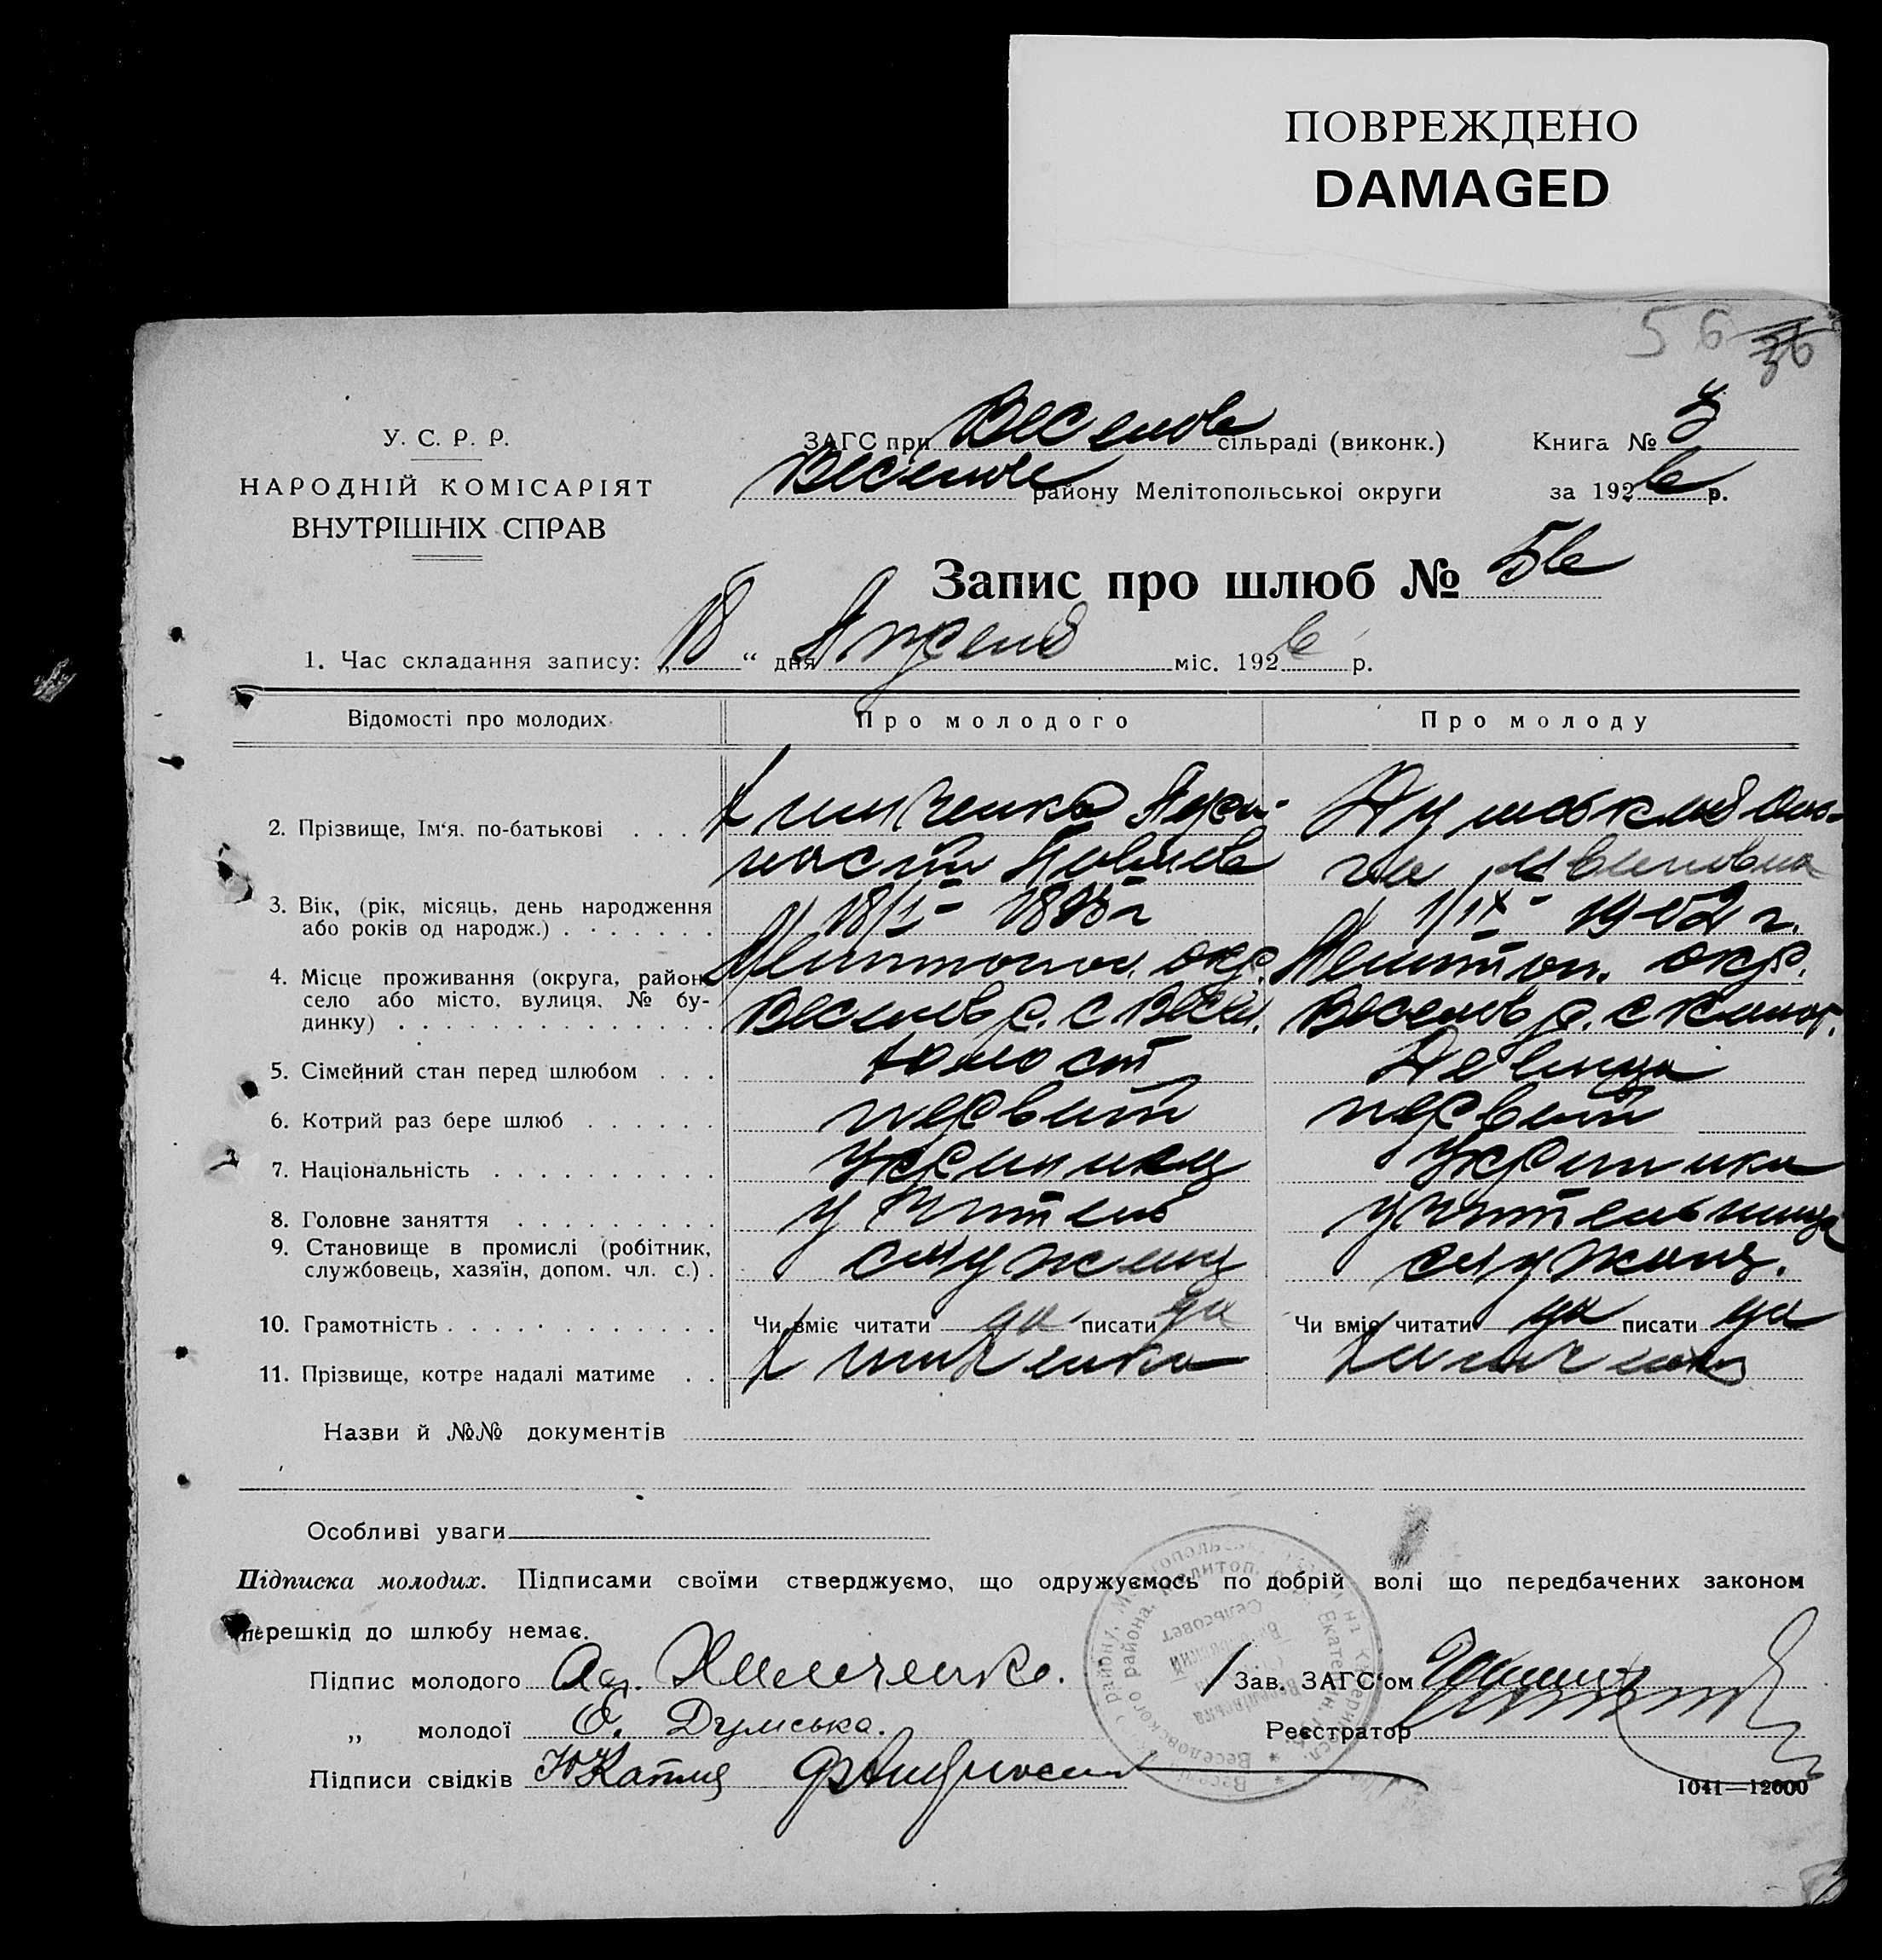 ПОВРЕЖДЕНО
DAMAGED
56 36
У. С. Р. Р.
НАРОДНІЙ КОМІСАРІЯТ
ВНУТРІШНІХ СПРАВ
ЗАГС при Веселов сільраді (виконк.) Книга № 3
Веселов району Мелітопольської округи за 1926 р.
Запис про шлюб № 56
1. Час складання запису: „18“ дня Апреля міс. 1926 р.
Відомості про молодих
Про молодого
Про молоду
2. Прізвище, Ім'я, по-батькові . . . .
Павлов
Ивановна
3. Вік, (рік, місяць, день народження
або років од народж.) . . . . . . .
18/I-
1/IX- 1902 г.
4. Місце проживання (округа, район
село або місто, вулиця, № бу-
динку) . . . . . . . . . . . . . .
Мелитопол. окр.
Веселов р. с Весел.
Мелитоп. окр.
Веселов р. с
5. Сімейний стан перед шлюбом . . . холост Девица
6. Котрий раз бере шлюб . . . . . . первый первый
7. Національність . . . . . . . . . . украинец украинка
8. Головне заняття . . . . . . . . . учитель учительница
9. Становище в промислі (робітник,
службовець, хазяїн, допом. чл. с.) . служащ служащ.
10. Грамотність . . . . . . . . . . . . Чи вміє читати да писати да Чи вміє читати да писати да
11. Прізвище, котре надалі матиме . . Химченко Химченко
Назви й №№ документів
Особливі уваги
Підписка молодих. Підписами своїми стверджуємо, що одружуємось по добрій волі що передбачених законом
перешкід до шлюбу немає.
Підпис молодого Химченко.
„ молодої О. Думська.
Підписи свідків
Зав. ЗАГС'ом
Реєстратор
1041—12000
Сельсовет